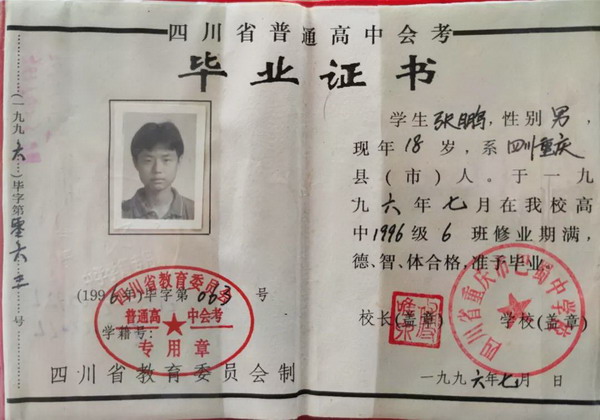 四川省普通高中会考
毕业证书
(一九九六)毕字第零六三号
学生张鹏,性别男,
现年18岁,系四川重庆
县(市)人。于一九
九六年七月在我校高
中1996级6班修业期满,
德、智、体合格,准予毕业。
校长(盖章) 学校(盖章)
一九九六年七月 日
(1996年)毕字第063号
学籍号:
四川省教育委员会
普通高中会考
专用章
四川省教育委员会制